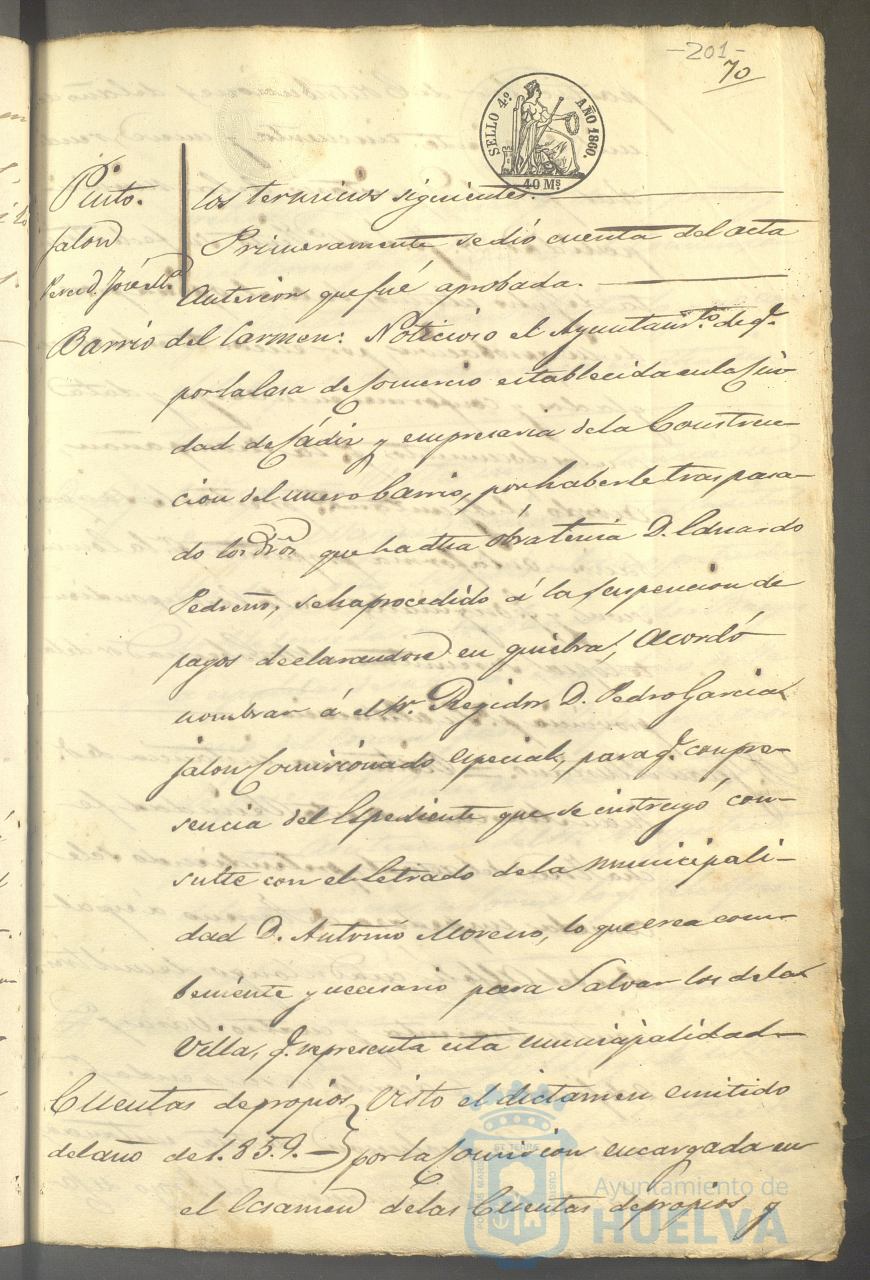 -201-
70
SELLO 4º AÑO 1860.
40 Ms
Pinto.
Jalon
Pered. José Ma
los terminos siguientes.
Primeramente se dió cuenta del acta
anterior que fué aprobada.
Barrio del Carmen: Noticioso el Ayuntamto. de q.
por la Casa de Comercio establecida en la Ciu
dad de Cádiz y empresaria de la Construc-
cion del nuevo barrio, por haberle traspasa-
do los dros que ha dha obra tenia D. Eduardo
Pedreño, se ha procedido á la suspencion de
pagos declarandose en quiebra, Acordó
nombrar á el Sr. Regidor D. Pedro Garcia
Jalon Comisionado especial, para q. con pre-
sencia del Espediente que se instruyó con-
sulte con el Letrado de la municipali-
dad D. Antonio Moreno, lo que crea com-
beniente y necesario para Salvar los de la
Villa, q. representa esta municipalidad
Cuentas de propios Visto el dictamen emitido
del año de 1.859. por la Comision encargada en
el Esamen de las Cuentas de propios y
Ayuntamiento de
HUELVA